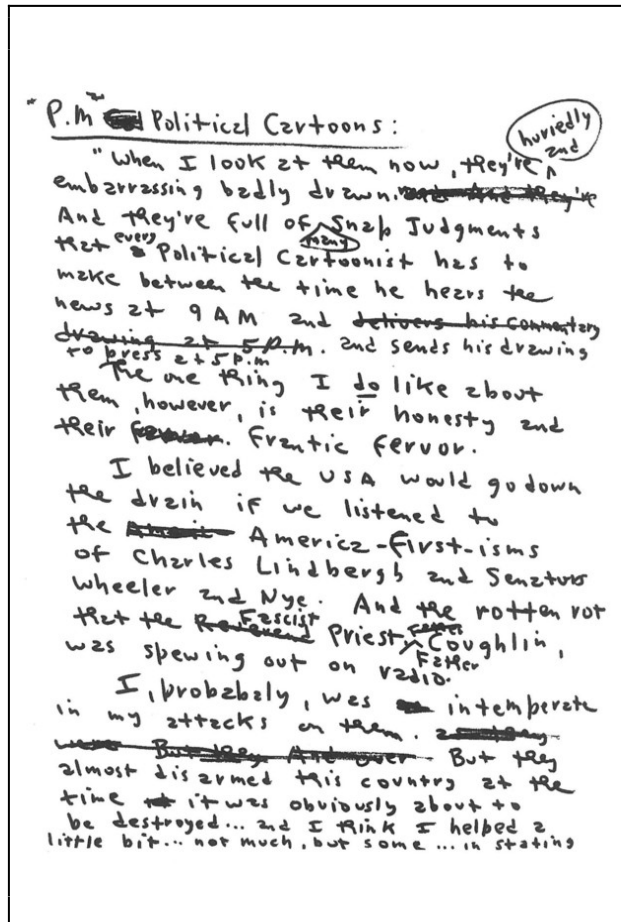 "P.M" Political Cartoons:
huriedly
and
"When I look at them now, they're ^
embarrassing badly drawn. and And they're
And they're full of Snap Judgments
many
that every a Political Cartoonist has to
make between the time he hears the
news at 9 AM and delivers his commentary
drawing at 5 P.M. and sends his drawing
to press at 5 p.m
The one thing I do like about
them, however, is their honesty and
their fervor. Frantic fervor.
I believed the USA would go down
the drain if we listened to
the America-First-isms
of Charles Lindbergh and Senators
Wheeler and Nye. And the rotten rot
that the Reverend Fascist Priest ^ Coughlin,
Father
was spewing out on radio.
I, probabaly, was intemperate
in my attacks on them. and they
were But they And over But they
almost disarmed this country at the
time it was obviously about to
be destroyed... and I think I helped a
little bit... not much, but some ... in stating